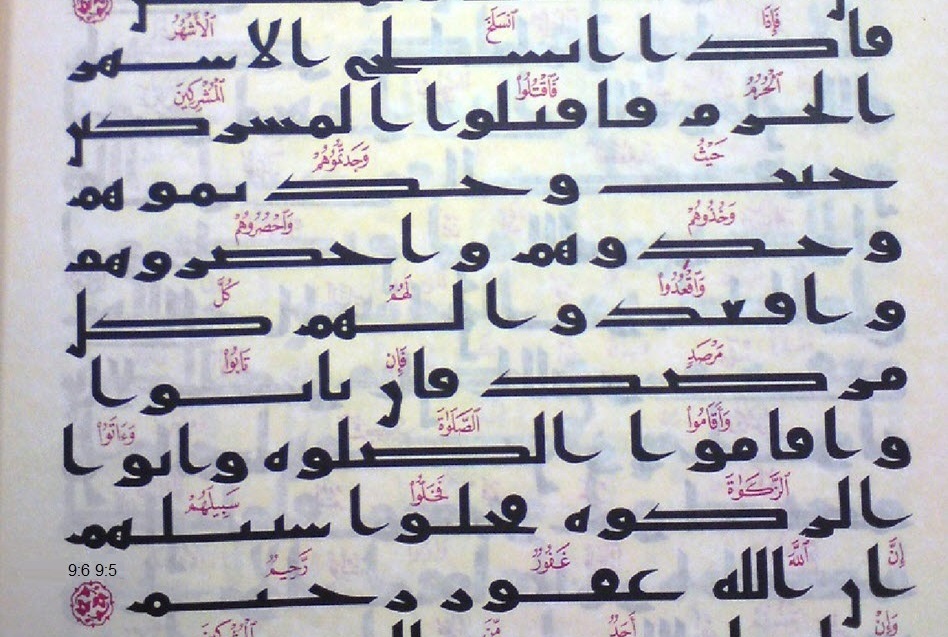 فَإِذَا ٱنسَلَخَ ٱلْأَشْهُرُ
فاذا انسلخ الاشهر
ٱلْحُرُمُ فَٱقْتُلُوا۟ ٱلْمُشْرِكِينَ
الحرم فاقتلوا المشركين
حَيْثُ وَجَدتُّمُوهُمْ
حيث وجدتموهم
وَخُذُوهُمْ وَٱحْصُرُوهُمْ
وخذوهم واحصروهم
وَٱقْعُدُوا۟ لَهُمْ كُلَّ
واقعدوا لهم كل
مَرْصَدٍ فَإِن تَابُوا۟
مرصد فان تابوا
وَأَقَامُوا۟ ٱلصَّلَوٰةَ وَءَاتَوُا۟
واقاموا الصلوه واتوا
ٱلزَّكَوٰةَ فَخَلُّوا۟ سَبِيلَهُمْ
الزكوه فخلوا سبيلهم
إِنَّ ٱللَّهَ غَفُورٌ رَّحِيمٌ
ان الله غفور رحيم
9:6 9:5
وَإِنْ أَحَدٌ مِّنَ ٱلْمُشْرِكِينَ